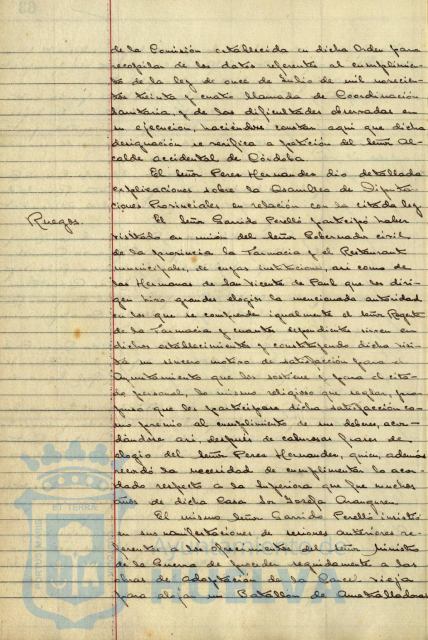 de la Comisión establecida en dicha Orden para
recopilar de los datos referentes al cumplimien-
to de la ley de once de Julio de mil novecien-
tos treinta y cuatro llamada de Coordinación
sanitaria, y de las dificultades observadas en
su ejecución, haciéndose constar aquí que dicha
designación se verifica a petición del Señor Al-
calde accidental de Córdoba.
El Señor Perez Hernandez dio detallada
explicaciones sobre la Asamblea de Diputa-
ciones Provinciales, en relación con la citada ley.
Ruegos.
El Señor Garrido Perelló participó haber
visitado en unión del Señor Gobernador civil
de la provincia la Farmacia y el Restaurant
municipales, de cuyas instituciones, así como de
las Hermanas de San Vicente de Paul que los diri-
gen hizo grandes elogios la mencionada autoridad
en los que se comprenden igualmente el Señor Regente
de la Farmacia y cuantos dependientes sirven en
dichos establecimientos y constituyendo dicha visi-
ta un sincero motivo de satisfacción para el
Ayuntamiento que los sostiene y para el cita-
do personal, lo mismo religioso que seglar, pro-
puso que les participara dicha satisfacción co-
mo premio al cumplimiento de sus deberes, acor-
dándose así, después de calurosas frases de
elogio del Señor Perez Hernandez, quien, además
recordó la necesidad de cumplimentar lo acor-
dado respecto a la Superiora que fue muchos
años de dicha Casa Sor Josefa Aranguren.
El mismo Señor Garrido Perelló insistió
en sus manifestaciones de sesiones anteriores re-
ferentes a los ofrecimientos del Señor Ministro
de la Guerra de proceder seguidamente a las
obras de Adaptación de la Carcel vieja
para alojar un Batallón de Ametralladoras